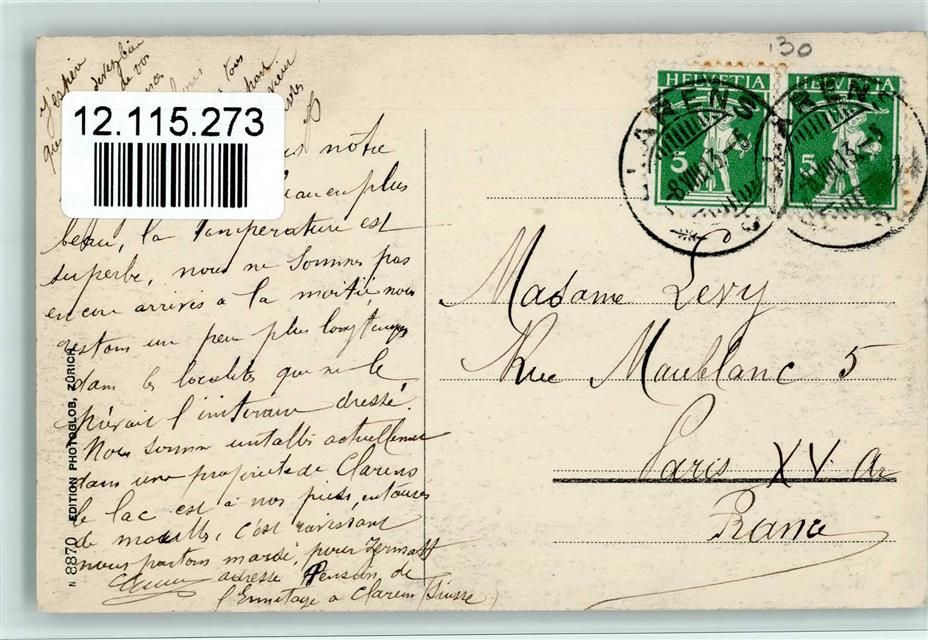 130
j'espère
de vos
vous
12.115.273
notre
beaucoup plus
beau, la température est
superbe, nous ne sommes pas
encore arrivés a la moitié, nous
restons un peu plus longtemps
dans les localités que ne le
prévoit l'itinéraire dressé.
Nous sommes installés actuellement
dans une propriété de Clarens
le lac est à nos pieds, entourés
de, c'est ravissant
nous partons mardi, pour Zermatt
adresse Pension de
l'Ermitage a Clarens (Suisse)
N 8870 EDITION PHOTOGLOB, ZÜRICH
HELVETIA
5
HELVETIA
5
CLARENS
-8.VIII.13.-5
CLARENS
-8.VIII.13.-5
Madame Levy
Rue Maublanc 5
Paris XV Ar
France